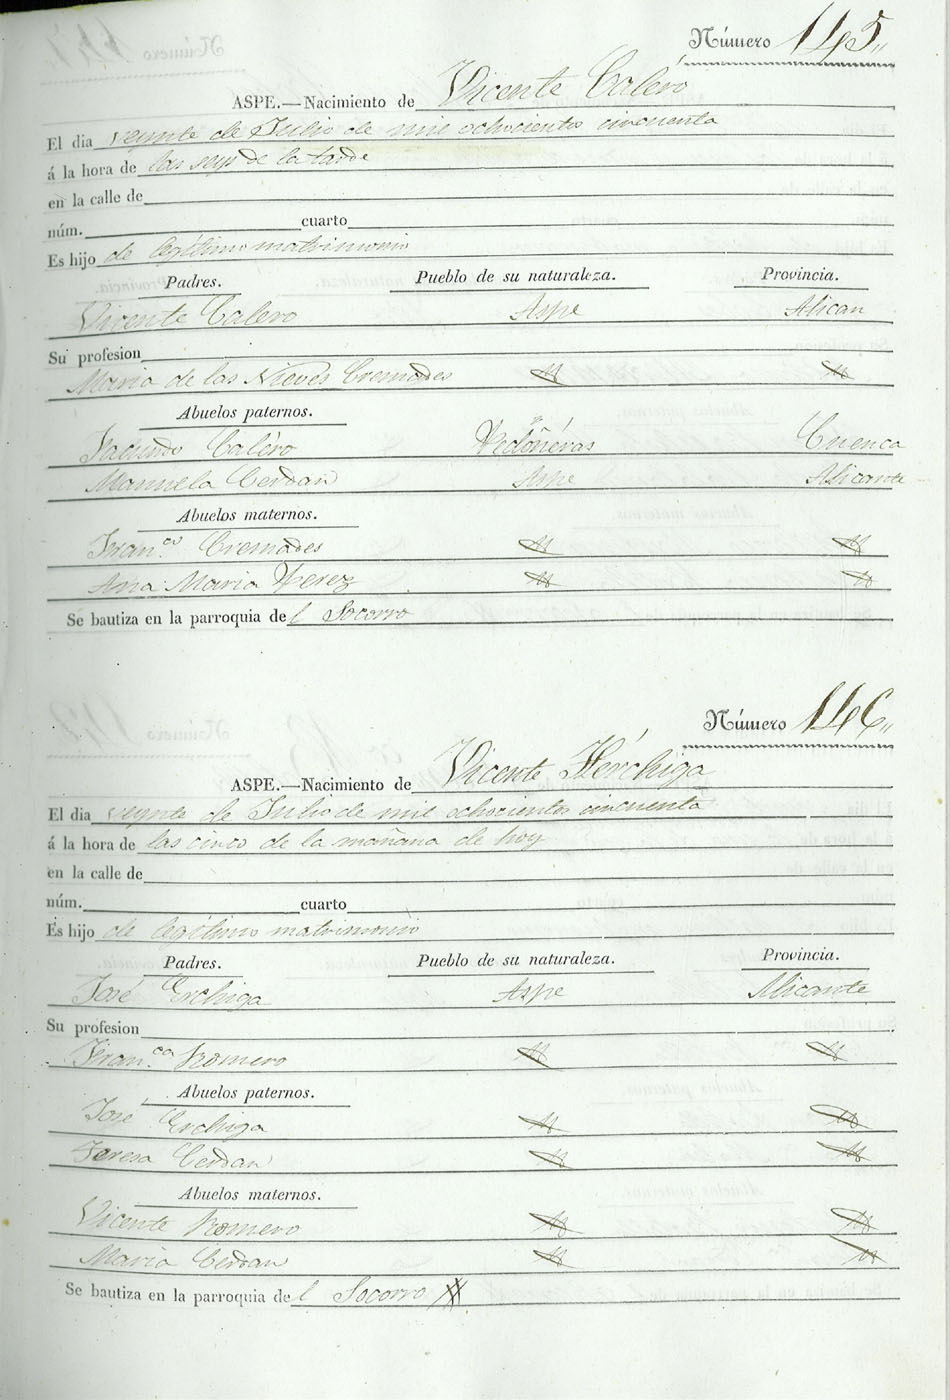 Número 145,,
ASPE.—Nacimiento de Vicente Caléro
El dia veynte de Julio de mil ochocientos cincuenta
á la hora de las seys de la tarde
en la calle de
núm. cuarto
Es hijo de legítimo matrimonio
Padres. Pueblo de su naturaleza. Provincia.
Vicente Calero Aspe Alican
Su profesion
Maria de las Nieves Cremades
Abuelos paternos.
Facundo Caléro Cuenca
Manuela Cerdan Aspe Alicante
Abuelos maternos.
Fran.co Cremades
Ana Maria Perez
Se bautiza en la parroquia del Socorro
Número 146,,
ASPE.—Nacimiento de Vicente Hérchiga
El dia veynte de Julio de mil ochocientos cincuenta
á la hora de las cinco de la mañana de hoy
en la calle de
núm. cuarto
Es hijo de legítimo matrimonio
Padres. Pueblo de su naturaleza. Provincia.
José Erchiga Aspe Alicante
Su profesion
Fran.ca Romero
Abuelos paternos.
José Erchiga
Teresa Cerdan
Abuelos maternos.
Vicente Romero
Maria Cerdan
Se bautiza en la parroquia del Socorro